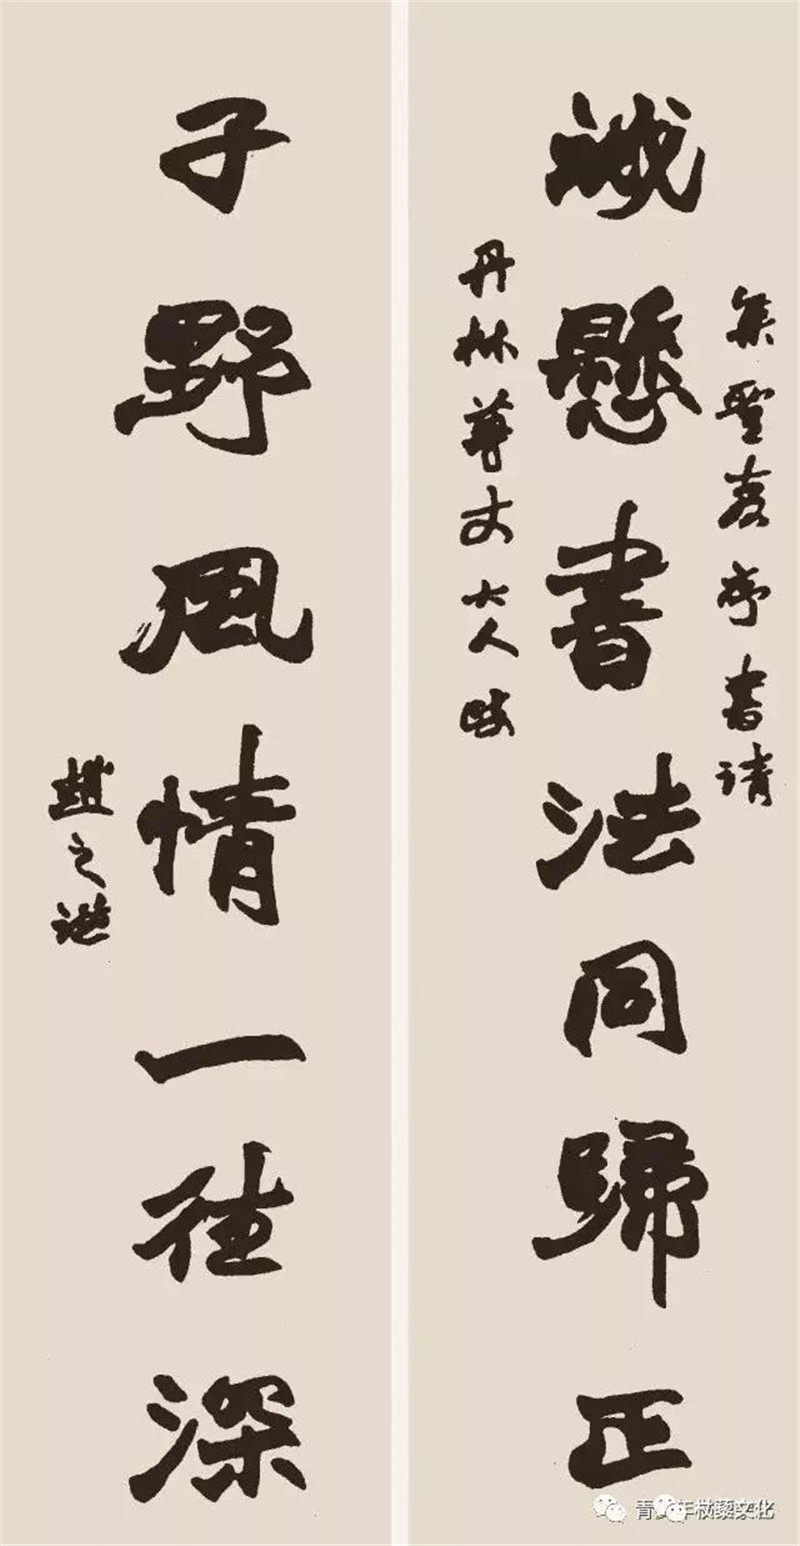 集聖教序書請
誠懸書法同歸正
丹林尊丈大人
子野風情一往深
趙之謙
青少年杖藜文化